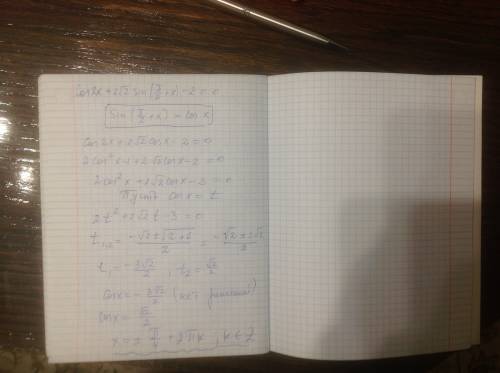 cos2x+2√2 sin(π/2+x)-2=0
sin(π/2+x)=cos x
cos2x+2√2cosx-2=0
2cos²x-1+2√2cosx-2=0
2cos²x+2√2cosx-3=0
Пусть cosx=t
2t²+2√2t-3=0
t₁,₂=(-√2±√2+6)/2=(-√2±2√2)/2
t₁=-3√2/2, t₂=√2/2
cosx=-3√2/2 (нет решений)
cosx=√2/2
x=±π/4+2πk, k∈Z